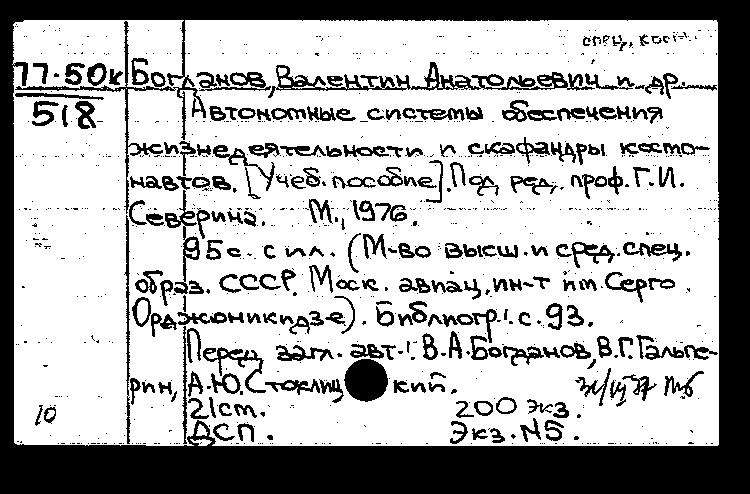 спец. косм.
77-50к Богданов, Валентин Анатольевич и др.
518 Автономные системы обеспечения
жизнедеятельности и скафандры космо-
навтов. [Учеб. пособие]. Под ред. проф. Г.И.
Северина. М., 1976.
95 с. с ил. (М-во высш. и сред. спец.
образ. СССР. Моск. авиац. ин-т им. Серго
Орджоникидзе). Библиогр.: с. 93.
Перед загл. авт.: В.А. Богданов, В.Г. Гальпе-
рин, А.Ю. Стоклиц кий.
10 21 см. 200 экз.
ДСП. Экз. №5.